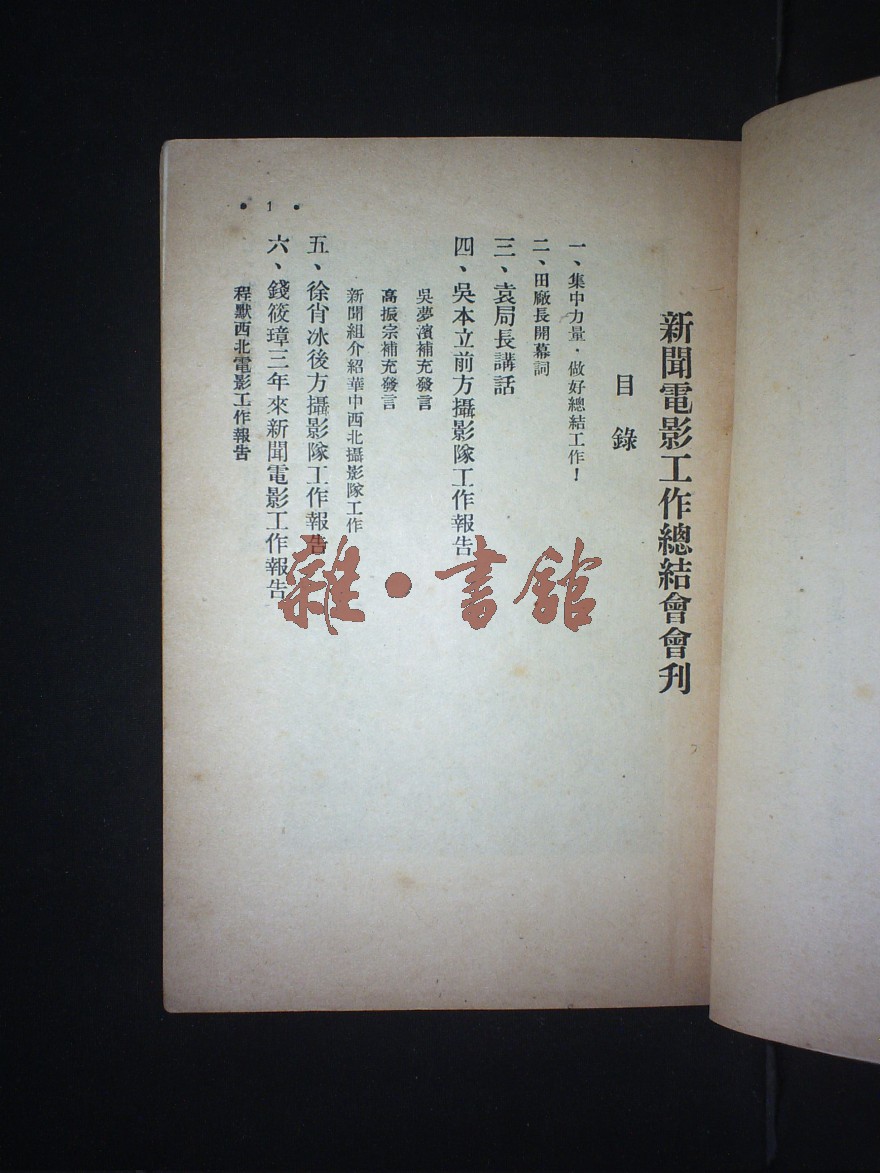 新聞電影工作總結會會刊
目錄
一、集中力量，做好總結工作！
二、田廠長開幕詞
三、袁局長講話
四、吳本立前方攝影隊工作報告
吳夢濱補充發言
高振宗補充發言
新聞組介紹華中西北攝影隊工作
五、徐肖冰後方攝影隊工作報告
六、錢筱璋三年來新聞電影工作報告
程默西北電影工作報告
• 1 •
雜・書館